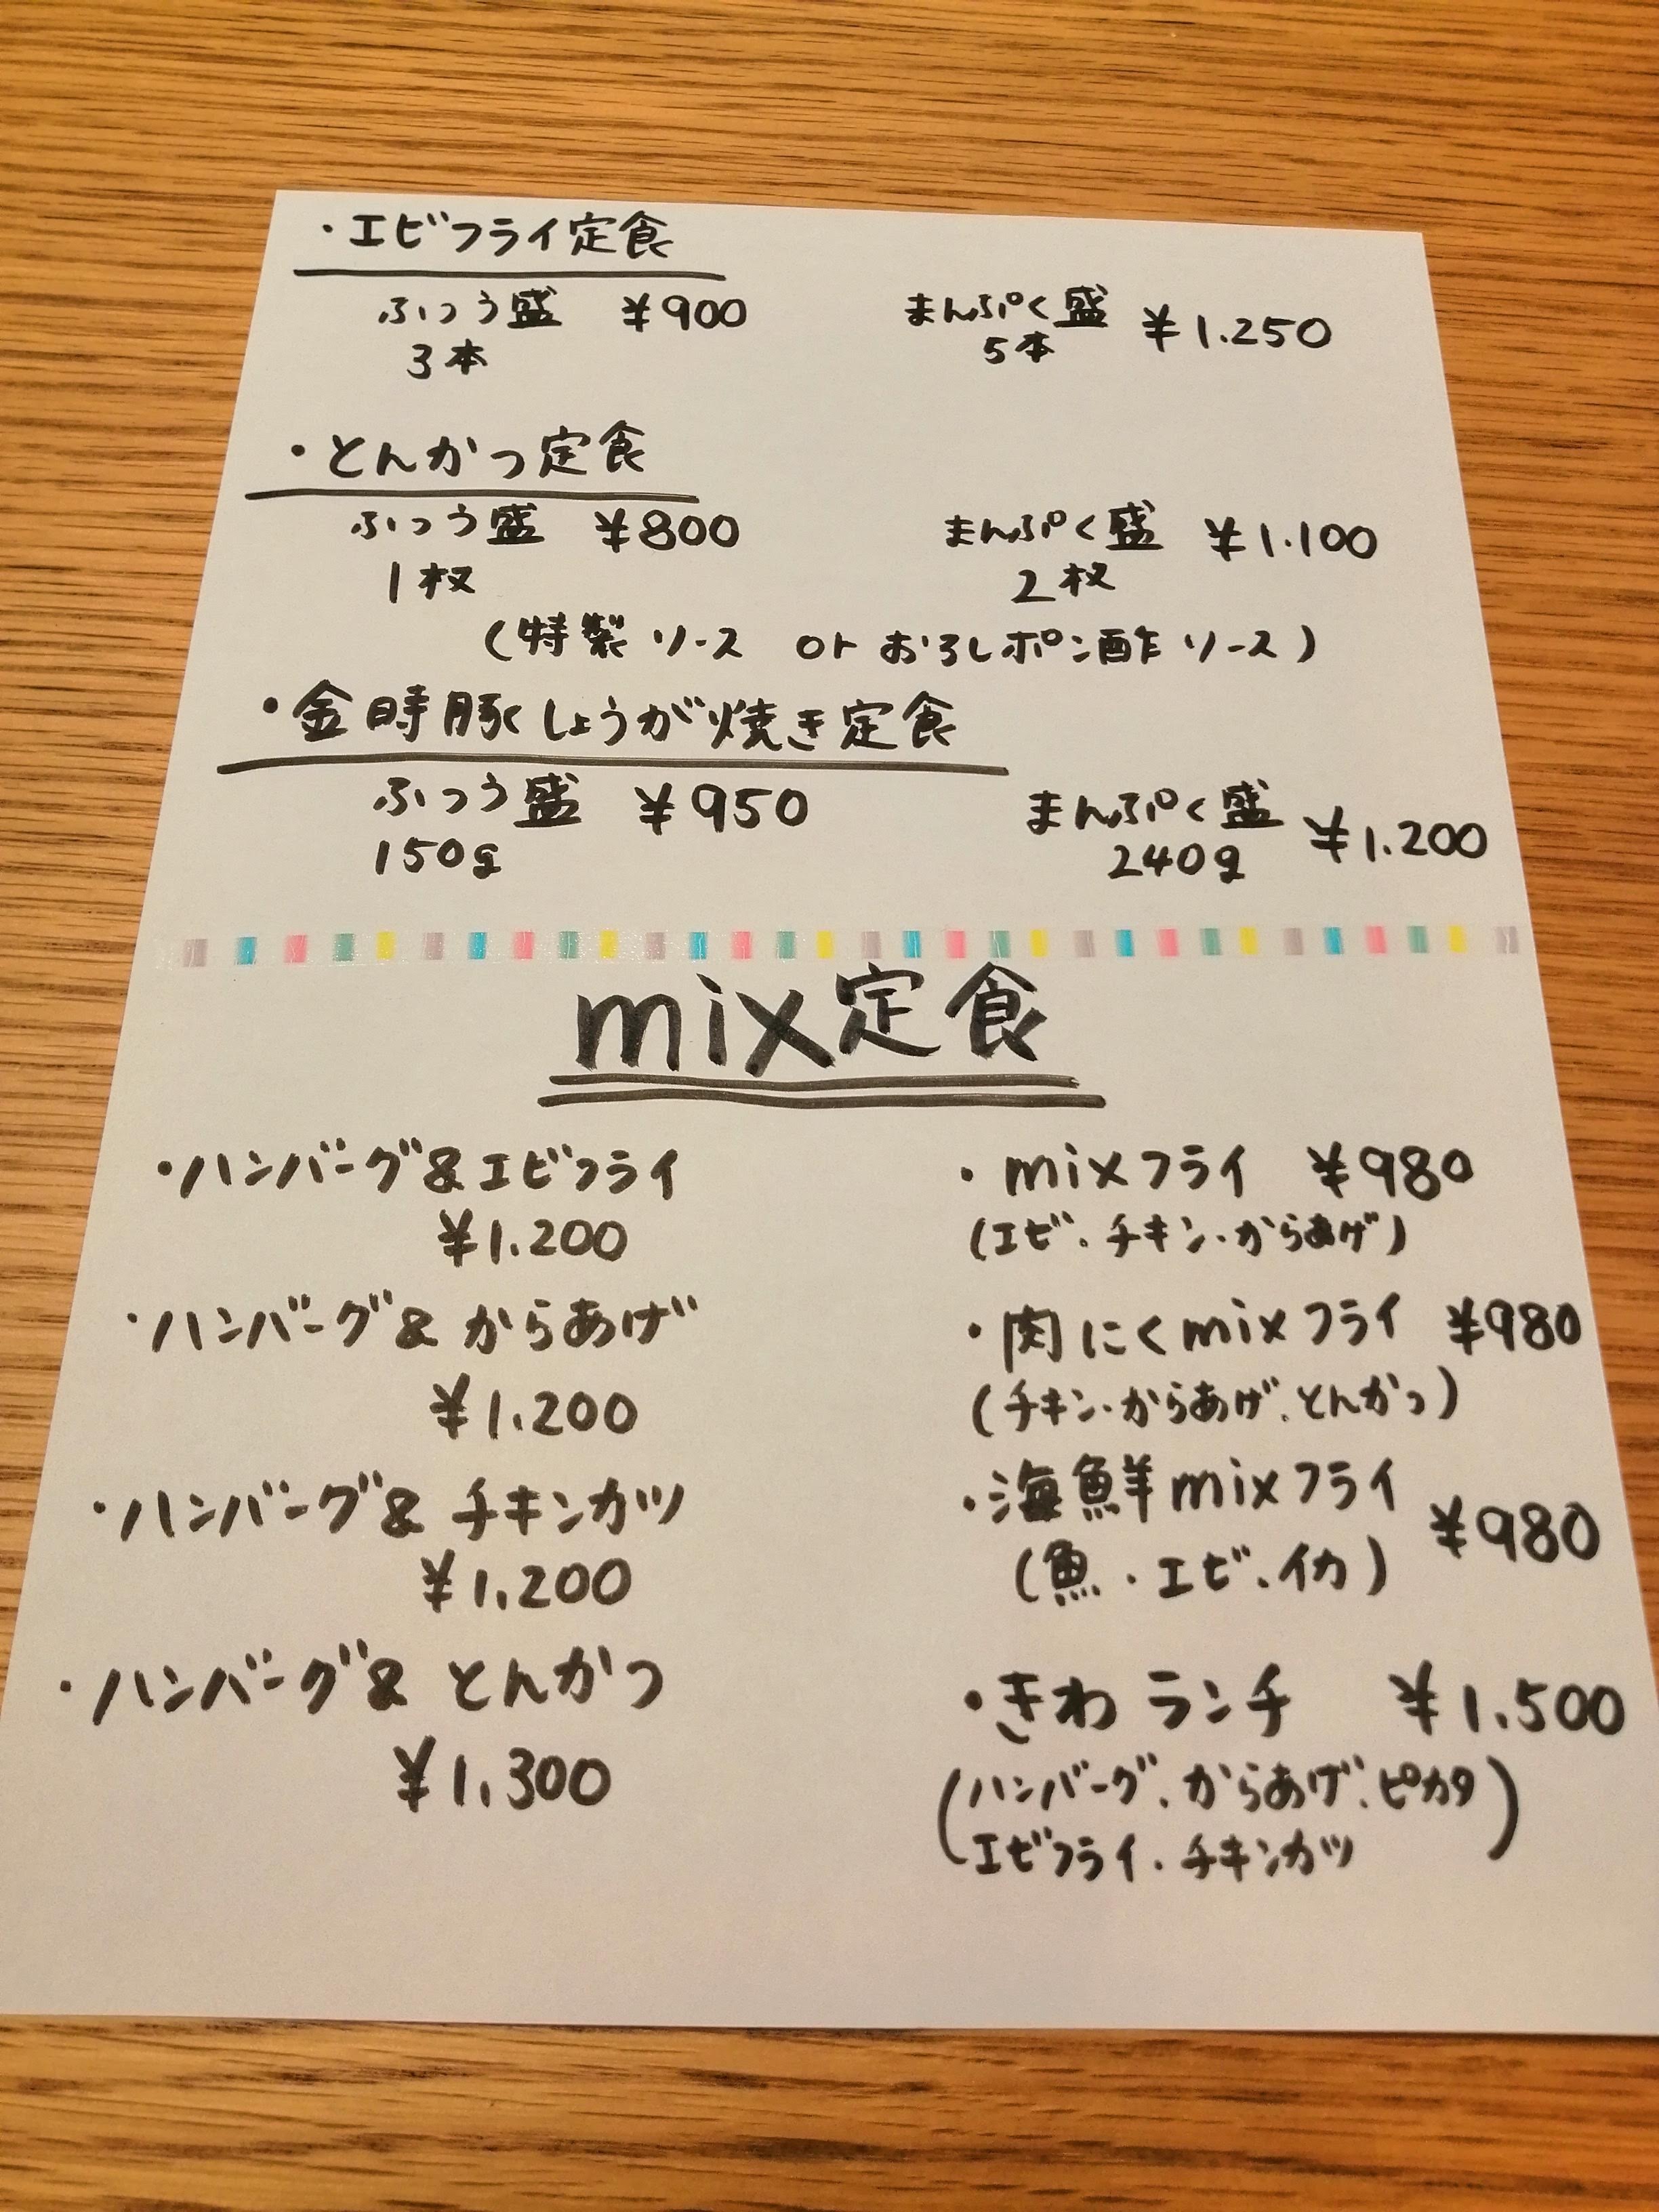 ・エビフライ定食
ふつう盛 ¥900 まんぷく盛 ¥1.250
3本 5本
・とんかつ定食
ふつう盛 ¥800 まんぷく盛 ¥1.100
1枚 2枚
(特製ソース or おろしポン酢ソース)
・金時豚しょうが焼き定食
ふつう盛 ¥950 まんぷく盛 ¥1.200
150g 240g
mix定食
・ハンバーグ&エビフライ
¥1.200
・ハンバーグ&からあげ
¥1.200
・ハンバーグ&チキンカツ
¥1.200
・ハンバーグ&とんかつ
¥1.300
・mixフライ ¥980
(エビ・チキン・からあげ)
・肉にくmixフライ ¥980
(チキン・からあげ・とんかつ)
・海鮮mixフライ ¥980
(魚・エビ・イカ)
・きわランチ ¥1.500
(ハンバーグ・からあげ・ピカタ
エビフライ・チキンカツ)